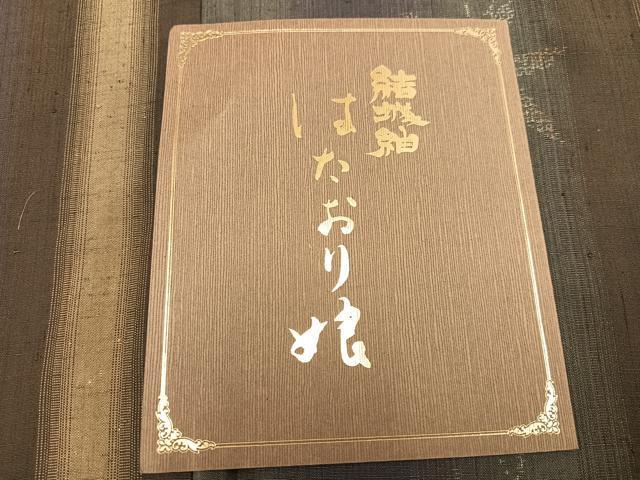 結城紬
はたおり娘